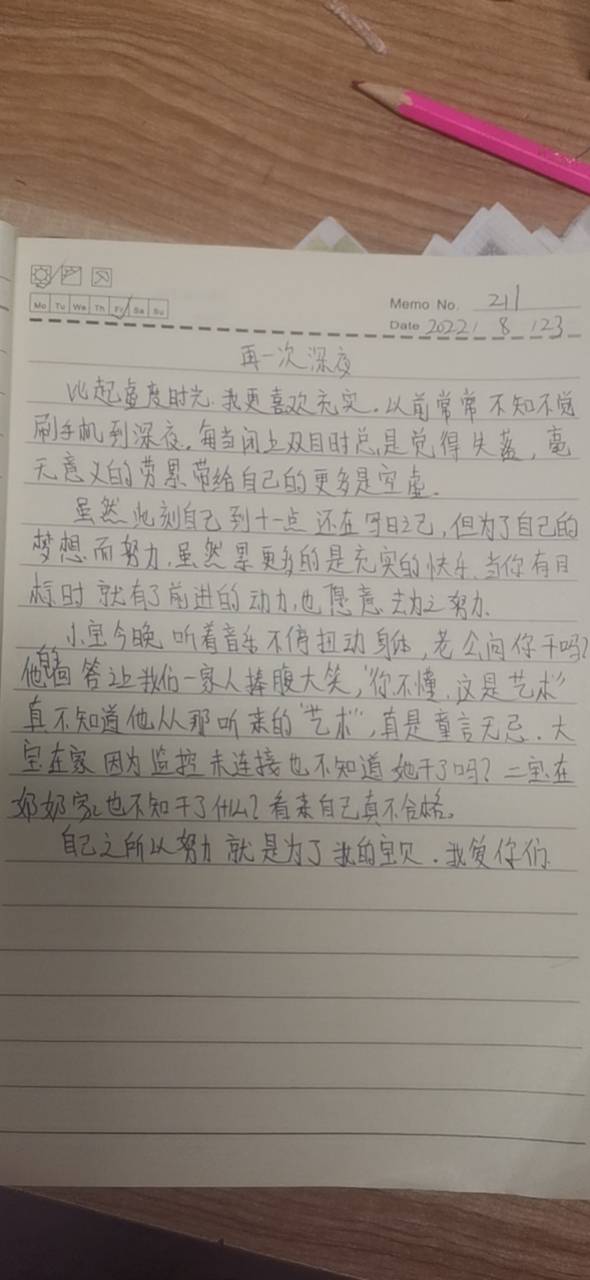 Mo Tu We Th Fr Sa Su
Memo No. 211
Date 2022 / 8 / 23
再一次深夜
比起虚度时光,我更喜欢充实。以前常常不知不觉
刷手机到深夜,每当闭上双目时总是觉得失落,毫
无意义的劳累带给自己的更多是空虚。
虽然此刻自己到十一点还在写日记,但为了自己的
梦想而努力,虽然累更多的是充实的快乐,当你有目
标时就有了前进的动力,也愿意去为之努力。
小宝今晚听着音乐不停扭动身体,老公问你干吗?
他的回答让我们一家人捧腹大笑,“你不懂,这是艺术”
真不知道他从那听来的“艺术”,真是童言无忌。大
宝在家因为监控未连接也不知道她干了吗?二宝在
奶奶家也不知干了什么?看来自己真不合格。
自己之所以努力就是为了我的宝贝。我爱你们